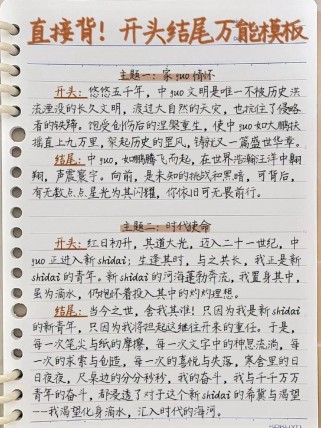 直接背！开头结尾万能模板
主题一：家guo情怀
开头：悠悠五千年，中guo文明是唯一不被历史洪
流湮没的长久文明，渡过大自然的天灾，也抗住了侵略
者的铁蹄。饱受创伤后的涅槃重生，使中guo如大鹏扶
摇直上九万里，架起历史的罡风，铸就又一篇盛世华章。
结尾：中guo，如鹏腾飞而起，在世界浩瀚汪洋中翱
翔，声震寰宇。向前，是未知的挑战和黑暗，可背后，
有无数点点星光为其闪耀，你依旧可无畏前行。
主题二：时代使命
开头：红日初升，其道大光，迈入二十一世纪，中
guo正进入新shidai；生逢其时，与之共长，我正是新
shidai的青年。新shidai的河海蓬勃奔流，我置身其中，
虽为滴水，仍抱怀着投入其中的灼灼理想。
结尾：当今之世，舍我其谁！只因为我是新shidai
的新青年，只因为我将担起这继往开来的重任。于是，
每一次笔尖与纸的摩擦，每一次文字中的神思流淌，每
一次的求索与创造，每一次的喜悦与失落，寒舍里的日
日夜夜，尺桌边的分分秒秒，我的奋斗，我与千千万万
青年的奋斗，都浸透了对于这个新shidai的希冀与渴望
——我渴望化身滴水，汇入时代的海河。